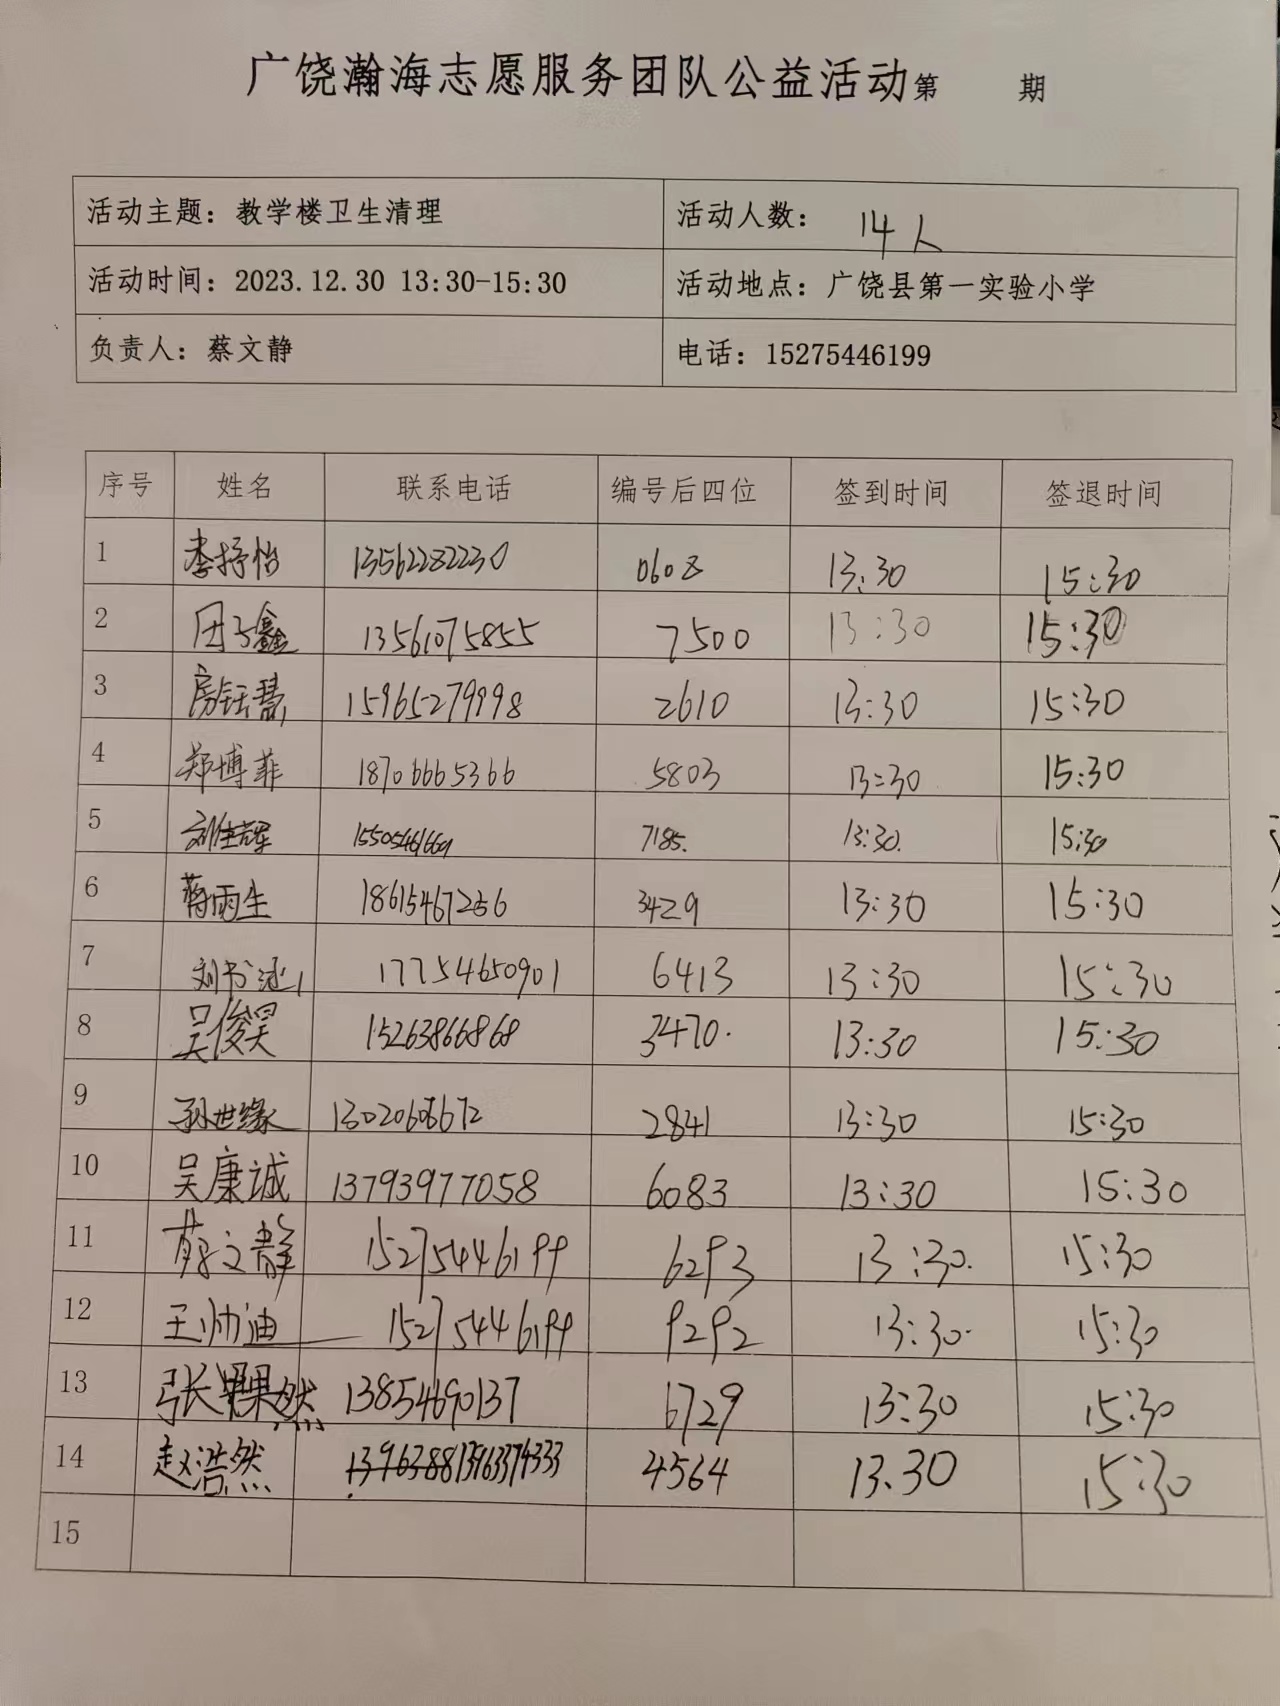 广饶瀚海志愿服务团队公益活动第 期
活动主题：教学楼卫生清理 活动人数： 14人
活动时间：2023.12.30 13:30-15:30 活动地点：广饶县第一实验小学
负责人：蔡文静 电话：15275446199
序号 姓名 联系电话 编号后四位 签到时间 签退时间
1 李抒怡 13562282230 0608 13:30 15:30
2 田子鑫 13561075855 7500 13:30 15:30
3 房钰慧 15965279998 2610 13:30 15:30
4 郑博菲 18706665366 5803 13:30 15:30
5 7185. 13:30. 15:30
6 蒋雨生 18615467256 3429 13:30 15:30
7 刘书涵 17754650901 6413 13:30 15:30
8 吴俊昊 15263866868 3470. 13:30 15:30
9 孙世缘 2841 13:30 15:30
10 吴康诚 13793977058 6083 13:30 15:30
11 蔡文静 15275446199 6293 13:30. 15:30
12 王帅迪 15275446199 9292 13:30. 15:30
13 张果然 13854690137 6729 13:30 15:30
14 赵浩然 13963374333 4564 13.30 15:30
15